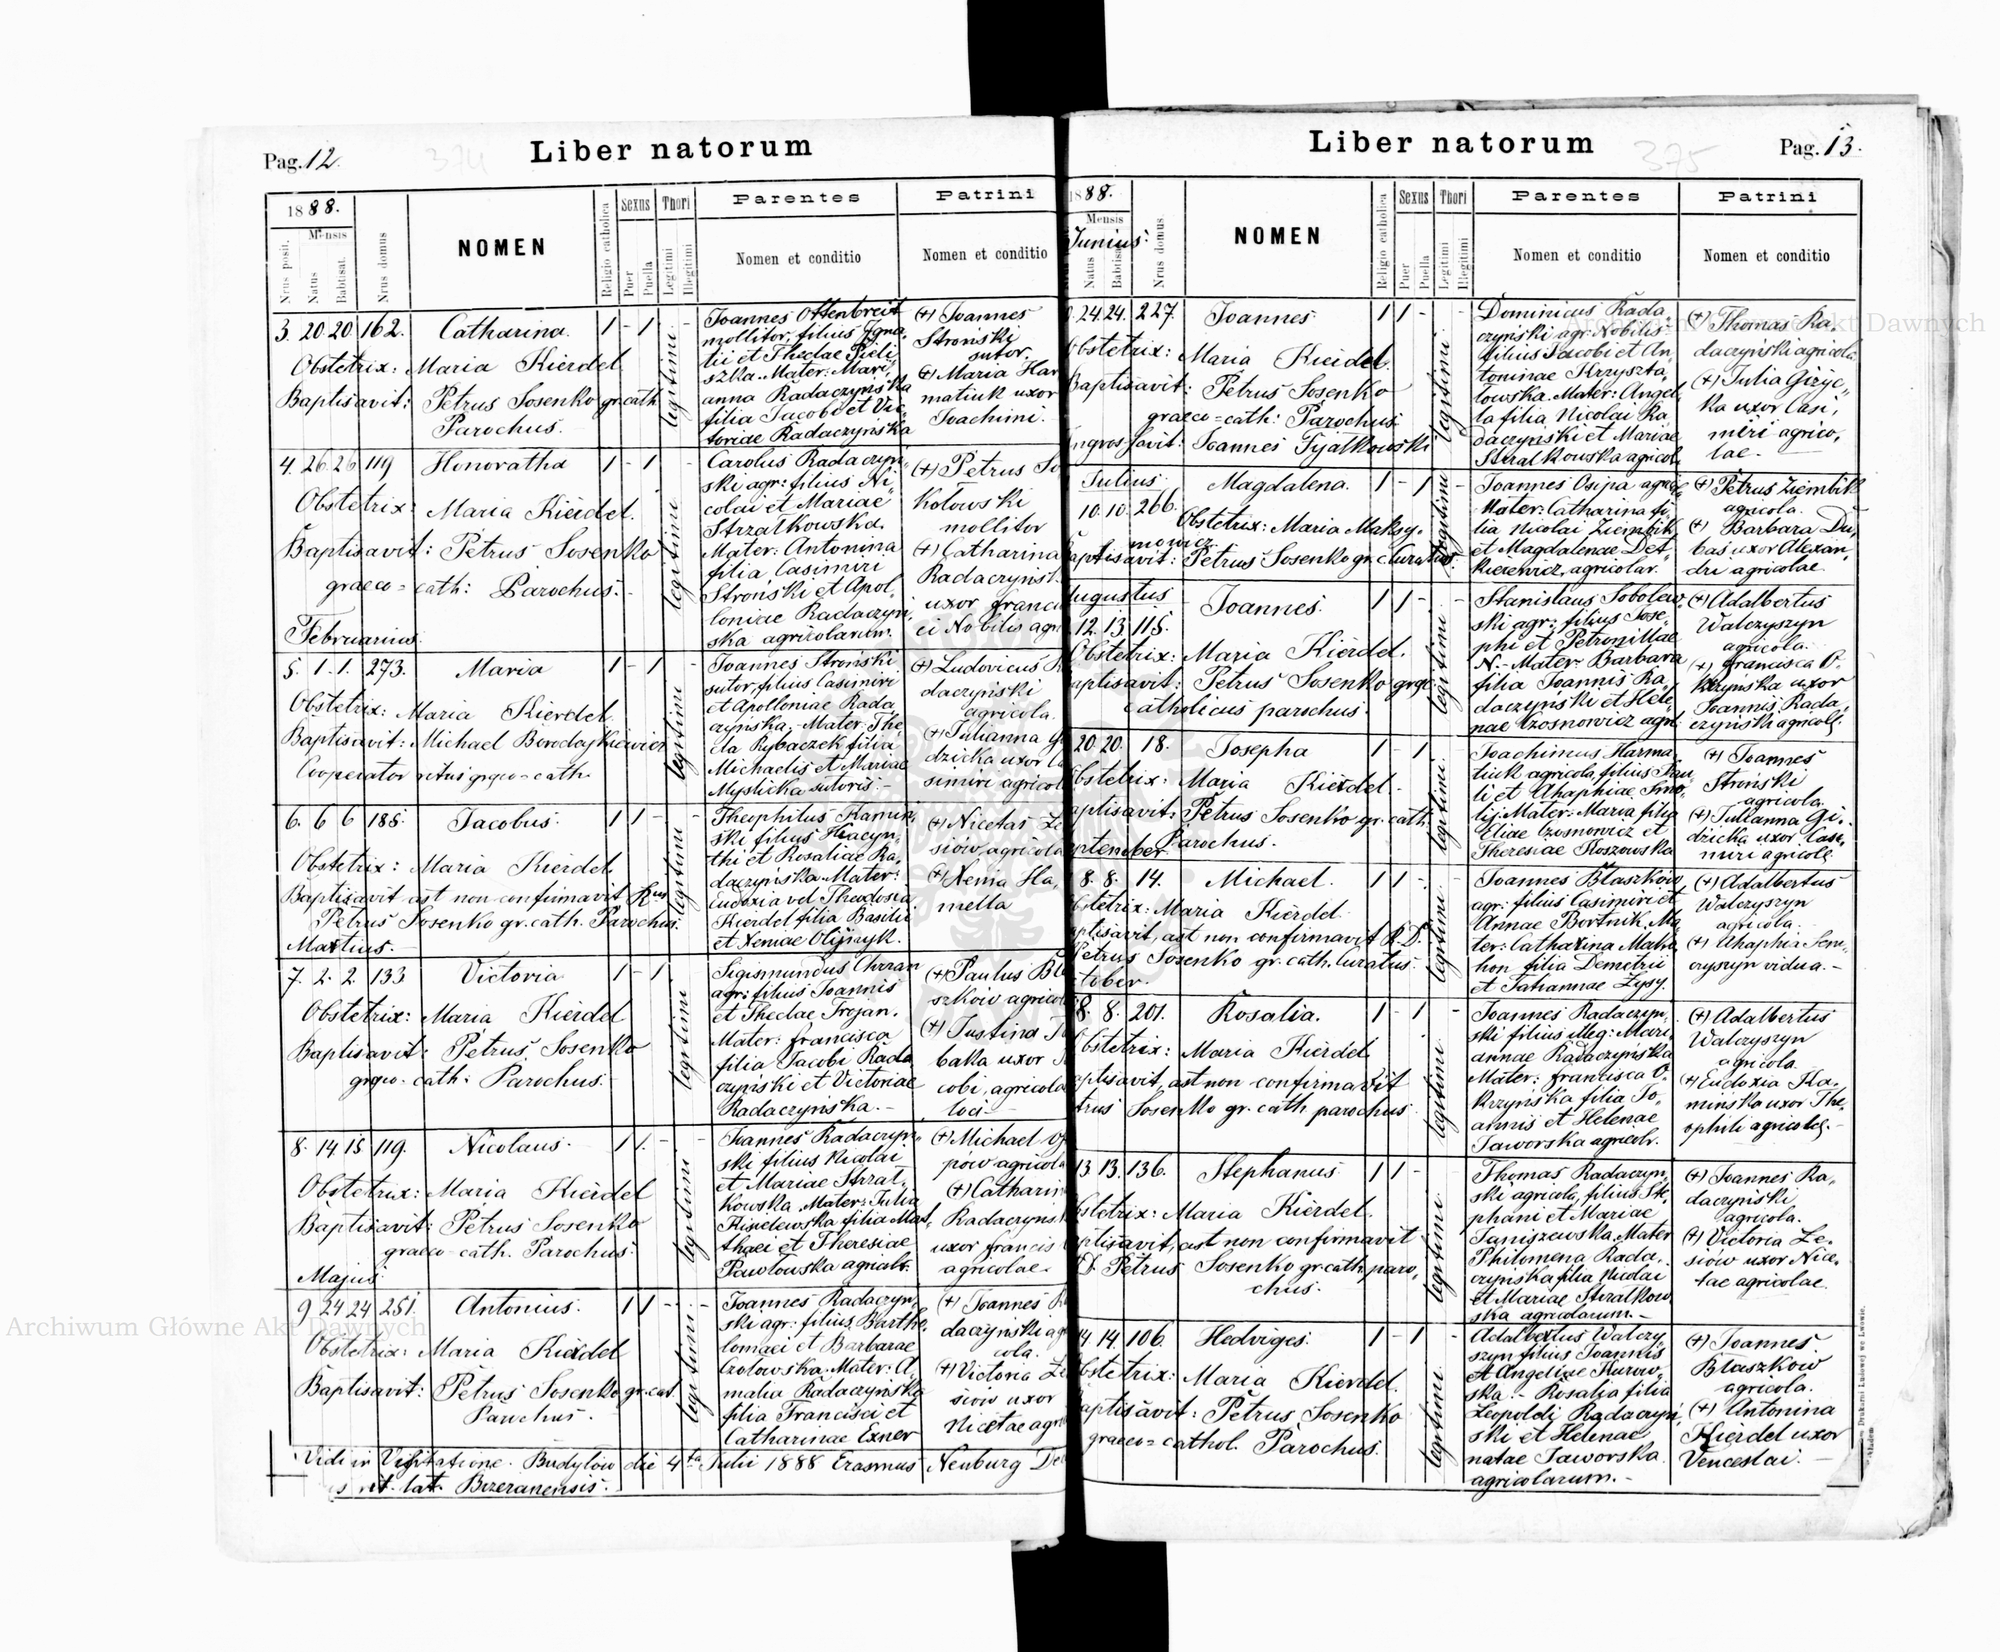 Liber natorum
Pag. 12.
374
1888.
Mensis
Nrus posit.
Natus
Babtisat.
Nrus domus
NOMEN
Religio catholica
Sexus
Puer
Puella
Thori
Legitimi
Illegitimi
Parentes
Nomen et conditio
Patrini
Nomen et conditio
3. 20 20 162. Catharina. 1 - 1 -
Obstetrix: Maria Kierdel
Baptisavit: Petrus Sosenko gr. cath.
Parochus.
legitimi
Joannes Ottenbreit
mollitor, filius Igna,
tii et Theclae Pieli,
szka. Mater: Mari,
anna Radaczyńska
filia Jacobi et Vic,
toriae Radaczyńska
(+) Joannes
Stroński
sutor.
(+) Maria Har
matiuk uxor
Joachimi.
4. 26 26 119 Honoratha 1 - 1 -
Obstetrix: Maria Kierdel.
Baptisavit: Petrus Sosenko
graeco-cath: Parochus.
Februarius.
legitimi
Carolus Radaczyń,
ski agr: filius Ni
colai et Mariae
Strzałkowska.
Mater: Antonina
filia Casimiri
Stroński et Apol,
loniae Radaczyń,
ska agricolarum.
(+) Petrus So
kołowski
mollitor
(+) Catharina
Radaczyńsk
uxor franci
ci Nobilis agri
5. 1. 1. 273. Maria 1 - 1 -
Obstetrix: Maria Kierdel
Baptisavit: Michael Borodajkiewicz
Cooperator ritus graeco-cath.
legitimi
Joannes Stroński
sutor, filius Casimiri
et Apolloniae Rada
czyńska, - Mater: The
cla Rybaczek filia
Michaelis et Mariae
Myslicka sutoris. -
(+) Ludovicus R
daczyński
agricola.
(+) Julianna G
dzicka uxor Ca
simiri agricol
6. 6 6 185. Jacobus. 1 1 - -
Obstetrix: Maria Kierdel
Baptisavit ast non confirmavit Rus
Petrus Sosenko gr. cath. Parochus.
Martius. -
legitimi
Theophilus Kamin,
ski filius Hiacyn,
thi et Rosaliae Ra,
daczyńska. Mater:
Eudoxia vel Theodosia
Kierdel filia Basilii
et Xeniae Olijnyk.
(+) Nicetas Le
siów, agricola
(+) Xenia Ha,
mella
7. 2. 2. 133 Victoria 1 - 1 -
Obstetrix: Maria Kierdel
Baptisavit: Petrus Sosenko
graeco-cath: Parochus.
legitimi
Sigismundus Chrzan
agr: filius Joannis
et Theclae Trojan.
Mater: francisca
filia Jacobi Rada
czyński et Victoriae
Radaczyńska. -
(+) Paulus Bła
szków agricol
(+) Justina
baka uxor
cobi, agricola
loci -
8. 14 15 119. Nicolaus. 1 1. - -
Obstetrix: Maria Kierdel
Baptisavit: Petrus Sosenko
graeco-cath. Parochus.
Majus.
legitimi
Joannes Radaczyń,
ski filius Nicolai
et Mariae Strzał,
kowska. Mater: Julia
filia Mat,
thaei et Theresiae
Pawłowska agricol.
(+) Michael
pów agricola
(+) Catharin
Radaczyńs
uxor francis
agricolae.
9 24 24 251. Antonius. 1 1 - -
Obstetrix: Maria Kierdel
Baptisavit: Petrus Sosenko gr. cat.
Parochus. -
legitimi
Joannes Radaczyń,
ski agr: filius Bartho,
lomaei et Barbarae
Czołowska. Mater: A,
malia Radaczyńska
filia Francisci et
Catharinae Exner
(+) Joannes R
daczyński ag
cola.
(+) Victoria Le
siów uxor
Nicetae agri
Vidi in Visitatione. Budyłów die 4ta Julii 1888 Erasmus Neuburg De
us rit. lat. Brzeżanensis.
Liber natorum
375
Pag. 13.
1888.
Mensis
Junius:
Natus
Babtisat
Nrus domus
NOMEN
Religio catholica
Sexus
Puer
Puella
Thori
Legitimi
Illegitimi
Parentes
Nomen et conditio
Patrini
Nomen et conditio
24. 24. 227. Joannes. 1 1 - -
Obstetrix: Maria Kierdel.
Baptisavit: Petrus Sosenko
graeco-cath: Parochus
Ingrossavit: Joannes Fijałkowski
legitimi
Dominicus Rada,
czyński agr. Nobilis
filius Jacobi et An,
toninae Krzyszta,
łowska. Mater: Angel
la filia Nicolai Ra
daczyński et Mariae
Strzałkowska agricol.
(+) Thomas Ra,
daczyński agricola
(+) Julia Giżyc,
ka uxor Casi,
miri agrico,
lae. -
Julius.
10. 10. 266. Magdalena. 1 - 1 -
Obstetrix: Maria Maksy,
mowicz.
Baptisavit: Petrus Sosenko gr. c. curatus.
legitimi
Joannes Osipa agricola
Mater: Catharina fi,
lia Nicolai Ziembik
et Magdalenae Det,
kiewicz, agricolar.
(+) Petrus Ziembik
agricola.
(+) Barbara Du,
bas uxor Alexan,
dri agricolae.
Augustus
12. 13. 115. Joannes. 1 1 - -
Obstetrix: Maria Kierdel.
Baptisavit: Petrus Sosenko graeco
catholicus parochus.
legitimi
Stanislaus Sobolew,
ski agr: filius Jose,
phi et Petronillae
N. - Mater: Barbara
filia Joannis Ra,
daczyński et Hele,
nae Czosnowicz agri.
(+) Adalbertus
Walczyszyn
agricola.
(+) francisca O,
krzyńska uxor
Joannis Rada,
czyński agricolae.
20. 20. 18. Josepha 1 - 1 -
Obstetrix: Maria Kierdel. -
Baptisavit: Petrus Sosenko gr. cath.
Parochus.
September.
legitimi
Joachimus Harma,
tiuk agricola, filius Pau
li et Ahaphiae Smo,
lij. Mater: Maria filia
Eliae Czosnowicz et
Theresiae Roszowska
(+) Joannes
Stroński
agricola.
(+) Julianna Gi,
dzicka uxor Casi,
miri agricolae.
8. 8. 14. Michael. 1 1 - -
Obstetrix: Maria Kierdel.
Baptisavit, ast non confirmavit R. D.
Petrus Sosenko gr. cath. curatus.
October.
legitimi
Joannes Błaszków
agr: filius Casimiri et
Annae Bortnik. Ma,
ter: Catharina
hon filia Demetrii
et Tatiannae Łysy.
(+) Adalbertus
Walczyszyn
agricola.
(+) Ahaphia Sem,
czyszyn vidua. -
8. 8. 201. Rosalia. 1 - 1 -
Obstetrix: Maria Kierdel
Baptisavit, ast non confirmavit
Petrus Sosenko gr. cath. parochus
legitimi
Joannes Radaczyń,
ski filius illeg: Mari,
annae Radaczyńska
Mater: francisca O,
krzyńska filia Jo,
annis et Helenae
Jaworska agricolr.
(+) Adalbertus
Walczyszyn
agricola.
(+) Eudoxia Ka,
mińska uxor The,
ophili agricolae. -
13 13. 136. Stephanus 1 1 - -
Obstetrix: Maria Kierdel.
Baptisavit, ast non confirmavit
D. Petrus Sosenko gr. cath. paro,
chus.
legitimi
Thomas Radaczyń,
ski agricola, filius Ste,
phani et Mariae
Janiszewska. Mater
Philomena Rada,
czyńska filia Nicolai
et Mariae Strzałkow,
ska agricolarum. -
(+) Joannes Ra,
daczyński
agricola.
(+) Victoria Le,
siów uxor Nice,
tae agricolae.
14 14. 106. Hedviges. 1 - 1 -
Obstetrix: Maria Kierdel.
Baptisavit: Petrus Sosenko
graeco-cathol. Parochus.
legitimi
Adalbertus Walczy,
szyn filius Joannis
et Angelae Kurow,
ska. - Rosalia filia
Leopoldi Radaczyń
ski et Helenae
natae Jaworska
agricolarum. -
(+) Joannes
Błaszków
agricola.
(+) Antonina
Kierdel uxor
Venceslai. -
Drukarni Ludowej we Lwowie.
Archiwum Główne Akt Dawnych
Archiwum Główne Akt Dawnych